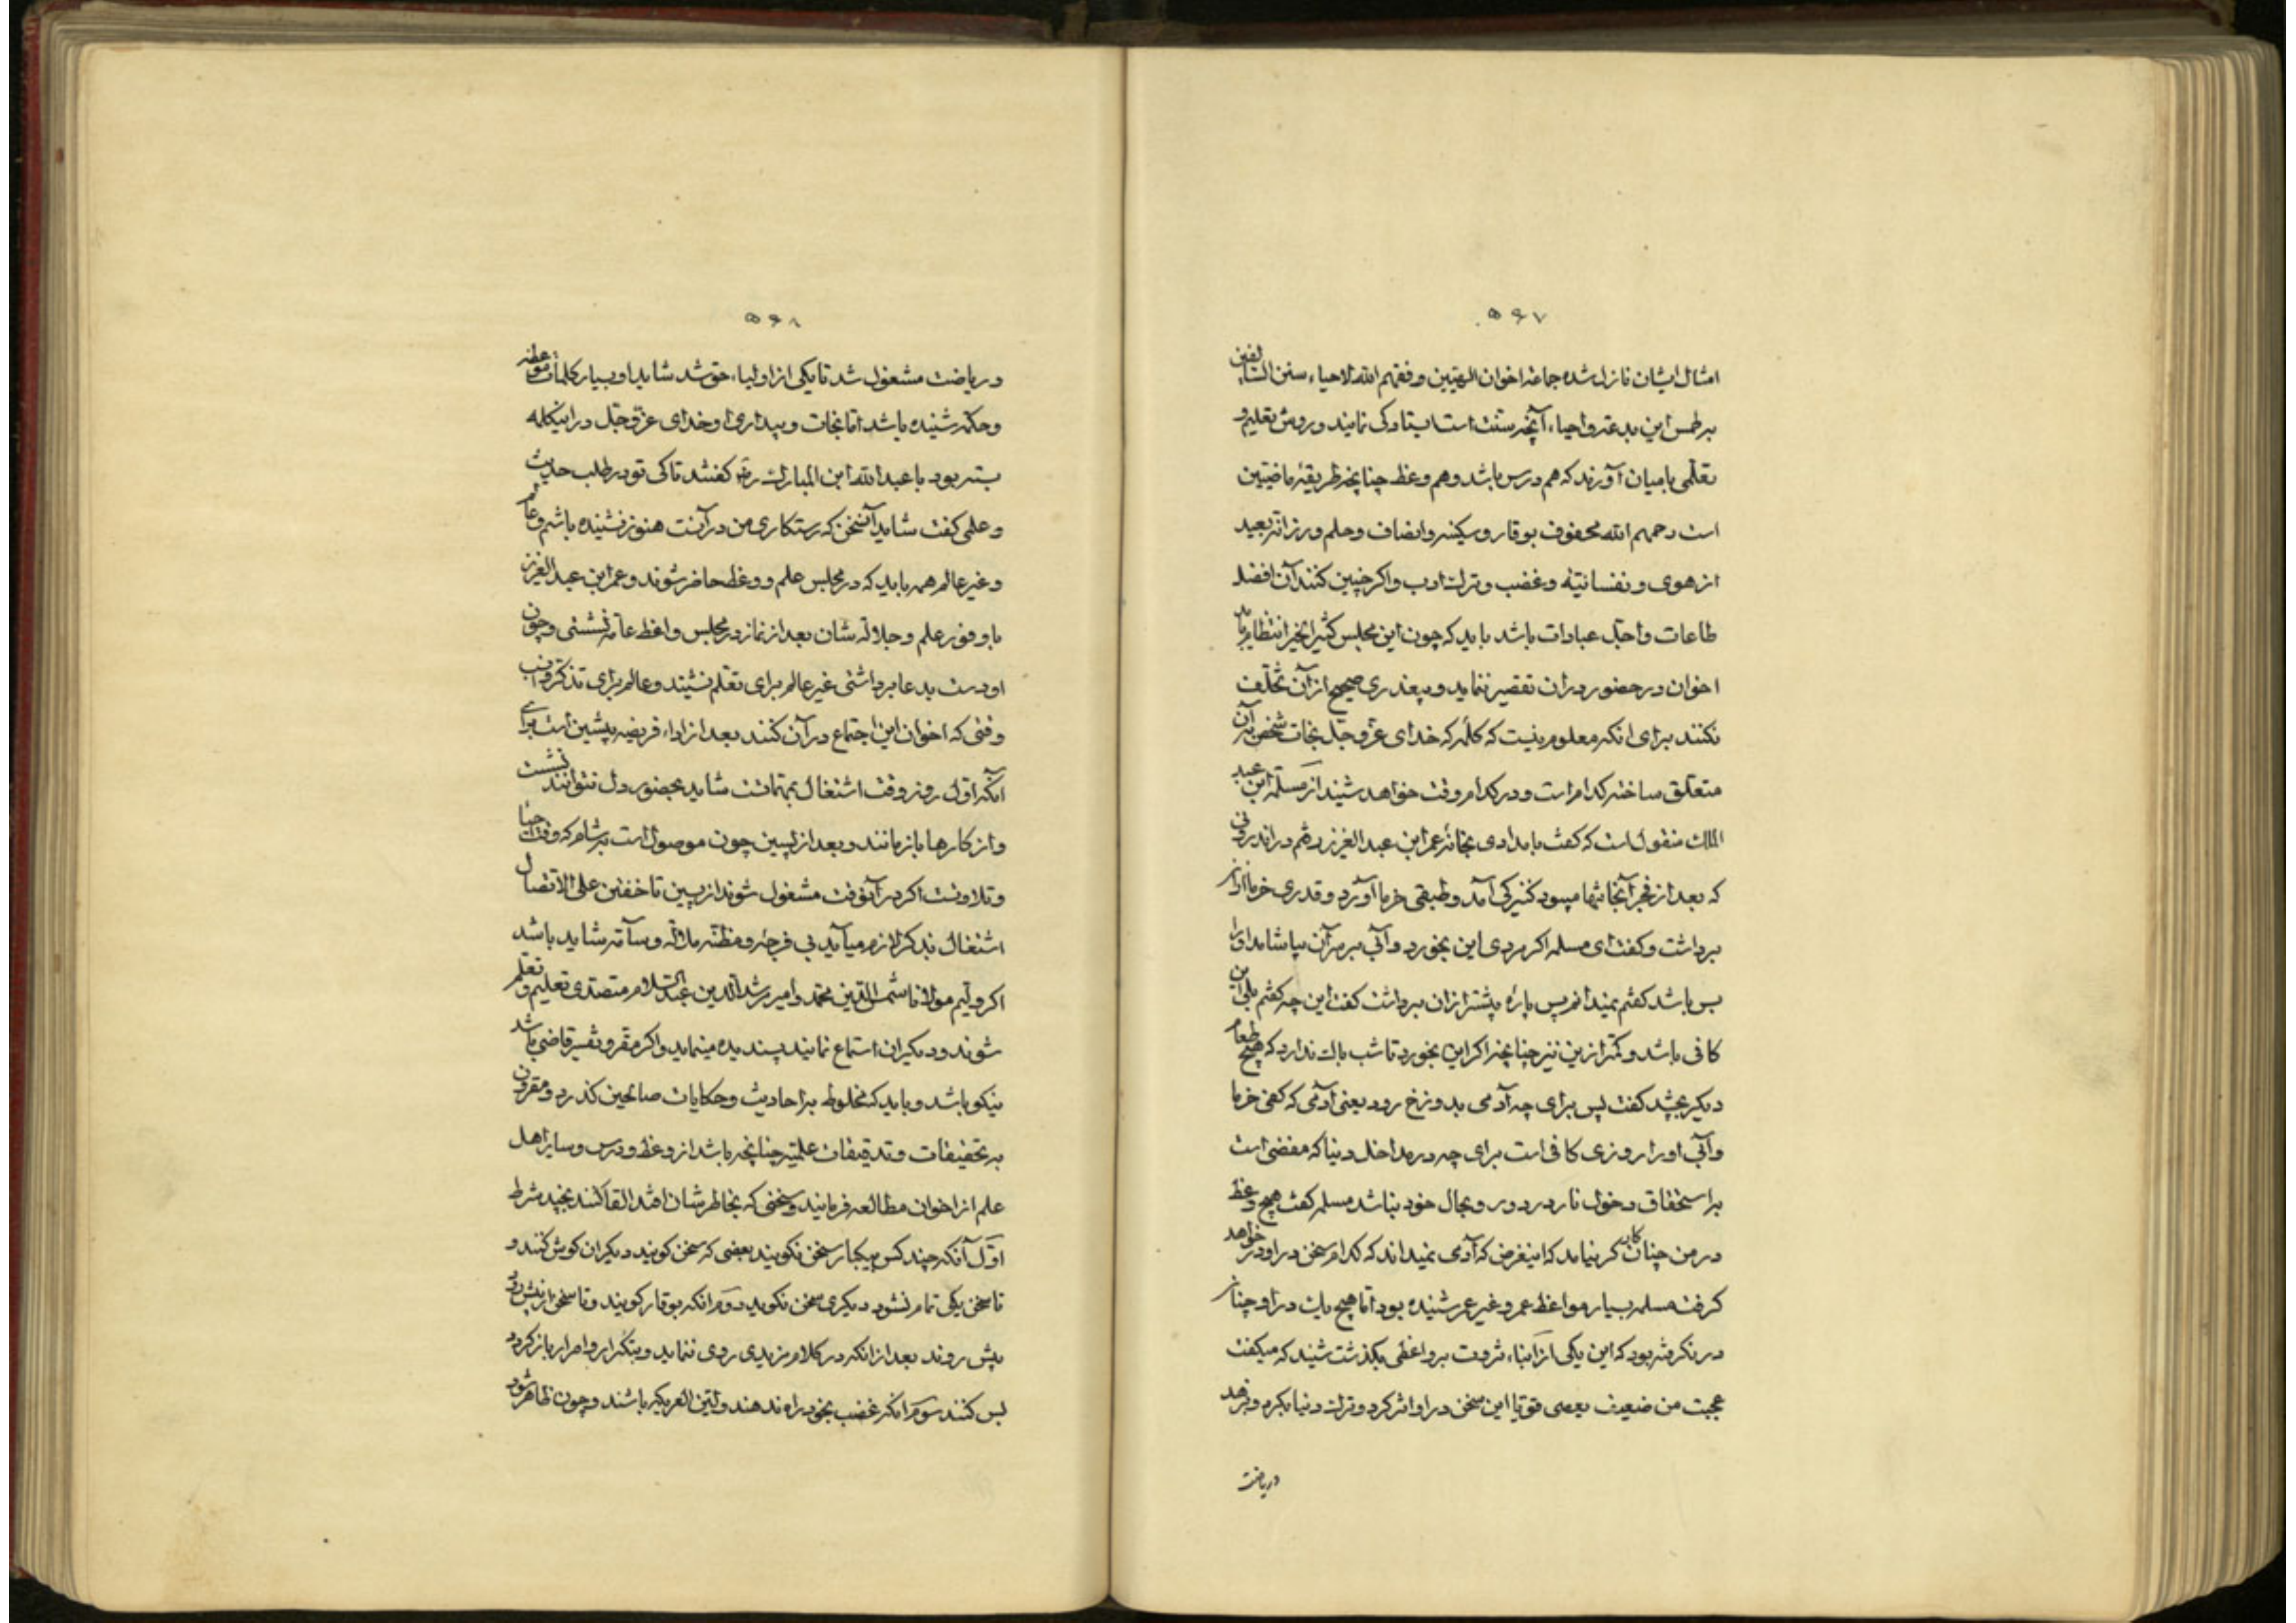 ۵۶۷
امثال ایشان نازل شده جماعة اخوان الهیین وفقهم الله لاحیاء سنن السالفین
بر طمس این بدعة و احیاء آنچه سنت است ایستادگی نمایند و روش تعلیم و
تعلمی بامیان آورند که هم درس باشد و هم وعظ چنانچه طریقهٔ ماضیین
است رحمهم الله محفوف بوقار و سکینه و انصاف و حلم و رزانة بعید
از هوی و نفسانیة و غضب و ترک ادب و اکر چنین کنند آن افضل
طاعات و اجل عبادات باشد باید که چون این مجلس کثیر الخیر انتظام یابد
اخوان در حضور دران تقصیر ننماید و بعذری صحیح ازآن تخلف
نکنند برای انکه معلوم نیست که کلمهٔ که خدای عز و جل نجات شخص بر آن
متعلق ساخته کدام است و در کدام وقت خواهد شنید از مسلمة ابن عبد
الملک منقول است که کفت بامدادی بخانهٔ عمر ابن عبد العزیز رفتم در اندرونی
که بعد از فجر آنجا تنها میبود کنیزکی آمد و طبقی خرما آورد و قدری خرما ازان
برداشت و کفت ای مسلمه اکر مردی این بخورد و آبی بر سر آن بیاشامد اورا
بس باشد کفتم نمیدانم پس پارهٔ بیشتر ازان برداشت کفت این چه کفتم بلی این
کافی باشد و کمتر ازین نیز چنانچه اکر این بخورد تا شب باک ندارد که هیچ طعام
دیکر بچشد کفت پس برای چه آدمی بدوزخ رود یعنی آدمی که کفی خرما
و آبی اورا روزی کافی است برای چه در مداخل دنیا که مفضی است
بر استحقاق دخول نار دررود و بحال خود نباشد مسلمه کفت هیچ وعظ
در من چنان کار کر نیامد که این غرض که آدمی نمیداند که کدام سخن در او در خواهد
کرفت مسلمه بسیار مواعظ عمر و غیر عمر شنیده بود اما هیچ یک در او چنان
در نکرفته بود که این یکی از ابناء ثروت بر واعظی بکذشت شنید که میکفت
عجبت من ضعیف یعصی قویا این سخن در او اثر کرد و ترک دنیا بکرد و بزهد
دریاضت
۵۶۸
و ریاضت مشغول شد تا یکی از اولیاء حق شد شاید او بسیار کلمات موعظه
و حکمة شنیده باشد اما نجات و بیداری او خدای عز و جل در اینکلمه
بسته بود با عبد الله ابن المبارک ره کفتند تا کی تو در طلب حدیث
و علمی کفت شاید آنسخن که رستکاری من در آنست هنوز نشنیده باشم و عالم
و غیر عالم همه باید که در مجلس علم و وعظ حاضر شوند و عمر ابن عبد العزیز
با وفور علم و جلالة شان بعد از نماز در مجلس واعظ عامه نشستی و چون
او دست بدعا برداشتی غیر عالم برای تعلم نشیند و عالم برای تذکر و انسب
وقتی که اخوان این اجتماع درآن کنند بعد از اداء فریضه پیشین است برای
انکه اول روز وقت اشتغال بمهماتست شاید بحضور دل نتوانند نشست
و از کارها باز مانند و بعد از پسین چون موصول است بر شام که وقت احیا
و تلاوتست اکر درآنوقت مشغول شوند از پسین تا خفتن علی الاتصال
اشتغال بذکر لازم میآید بی فرجه و مظنّه ملالة و سآمة شاید باشد
اکر ولیم مولانا شمس الدین محمد و امیر مرشد الدین عبد السلام متصدی تعلیم و تعلم
شوند و دیکران استماع نمایند پسندیده مینماید و اکر مقرو تفسیر قاضی باشد
نیکو باشد و باید که مخلوط بر احادیث و حکایات صالحین کذرد و مقرون
به تحقیقات و تدقیقات علمیه چنانچه باشد از وعظ و درس و سایر اهل
علم از اخوان مطالعه فرمایند و سخنی که بخاطر شان افتد القا کنند بچند شرط
اول آنکه چند کس بیکبار سخن نکویند بعضی که سخن کویند دیکران کوش کنند و
تا سخن یکی تمام نشود دیکری سخن نکوید دوم انکه بوقار کویند و تا سخن از پیش رود
پیش روند بعد از انکه در کلام مزیدی روی ننماید و بتکرار و امرار باز کردد
بس کنند سوم انکه غضب بخود راه ندهند و لین العریکه باشند و چون ظاهر شود